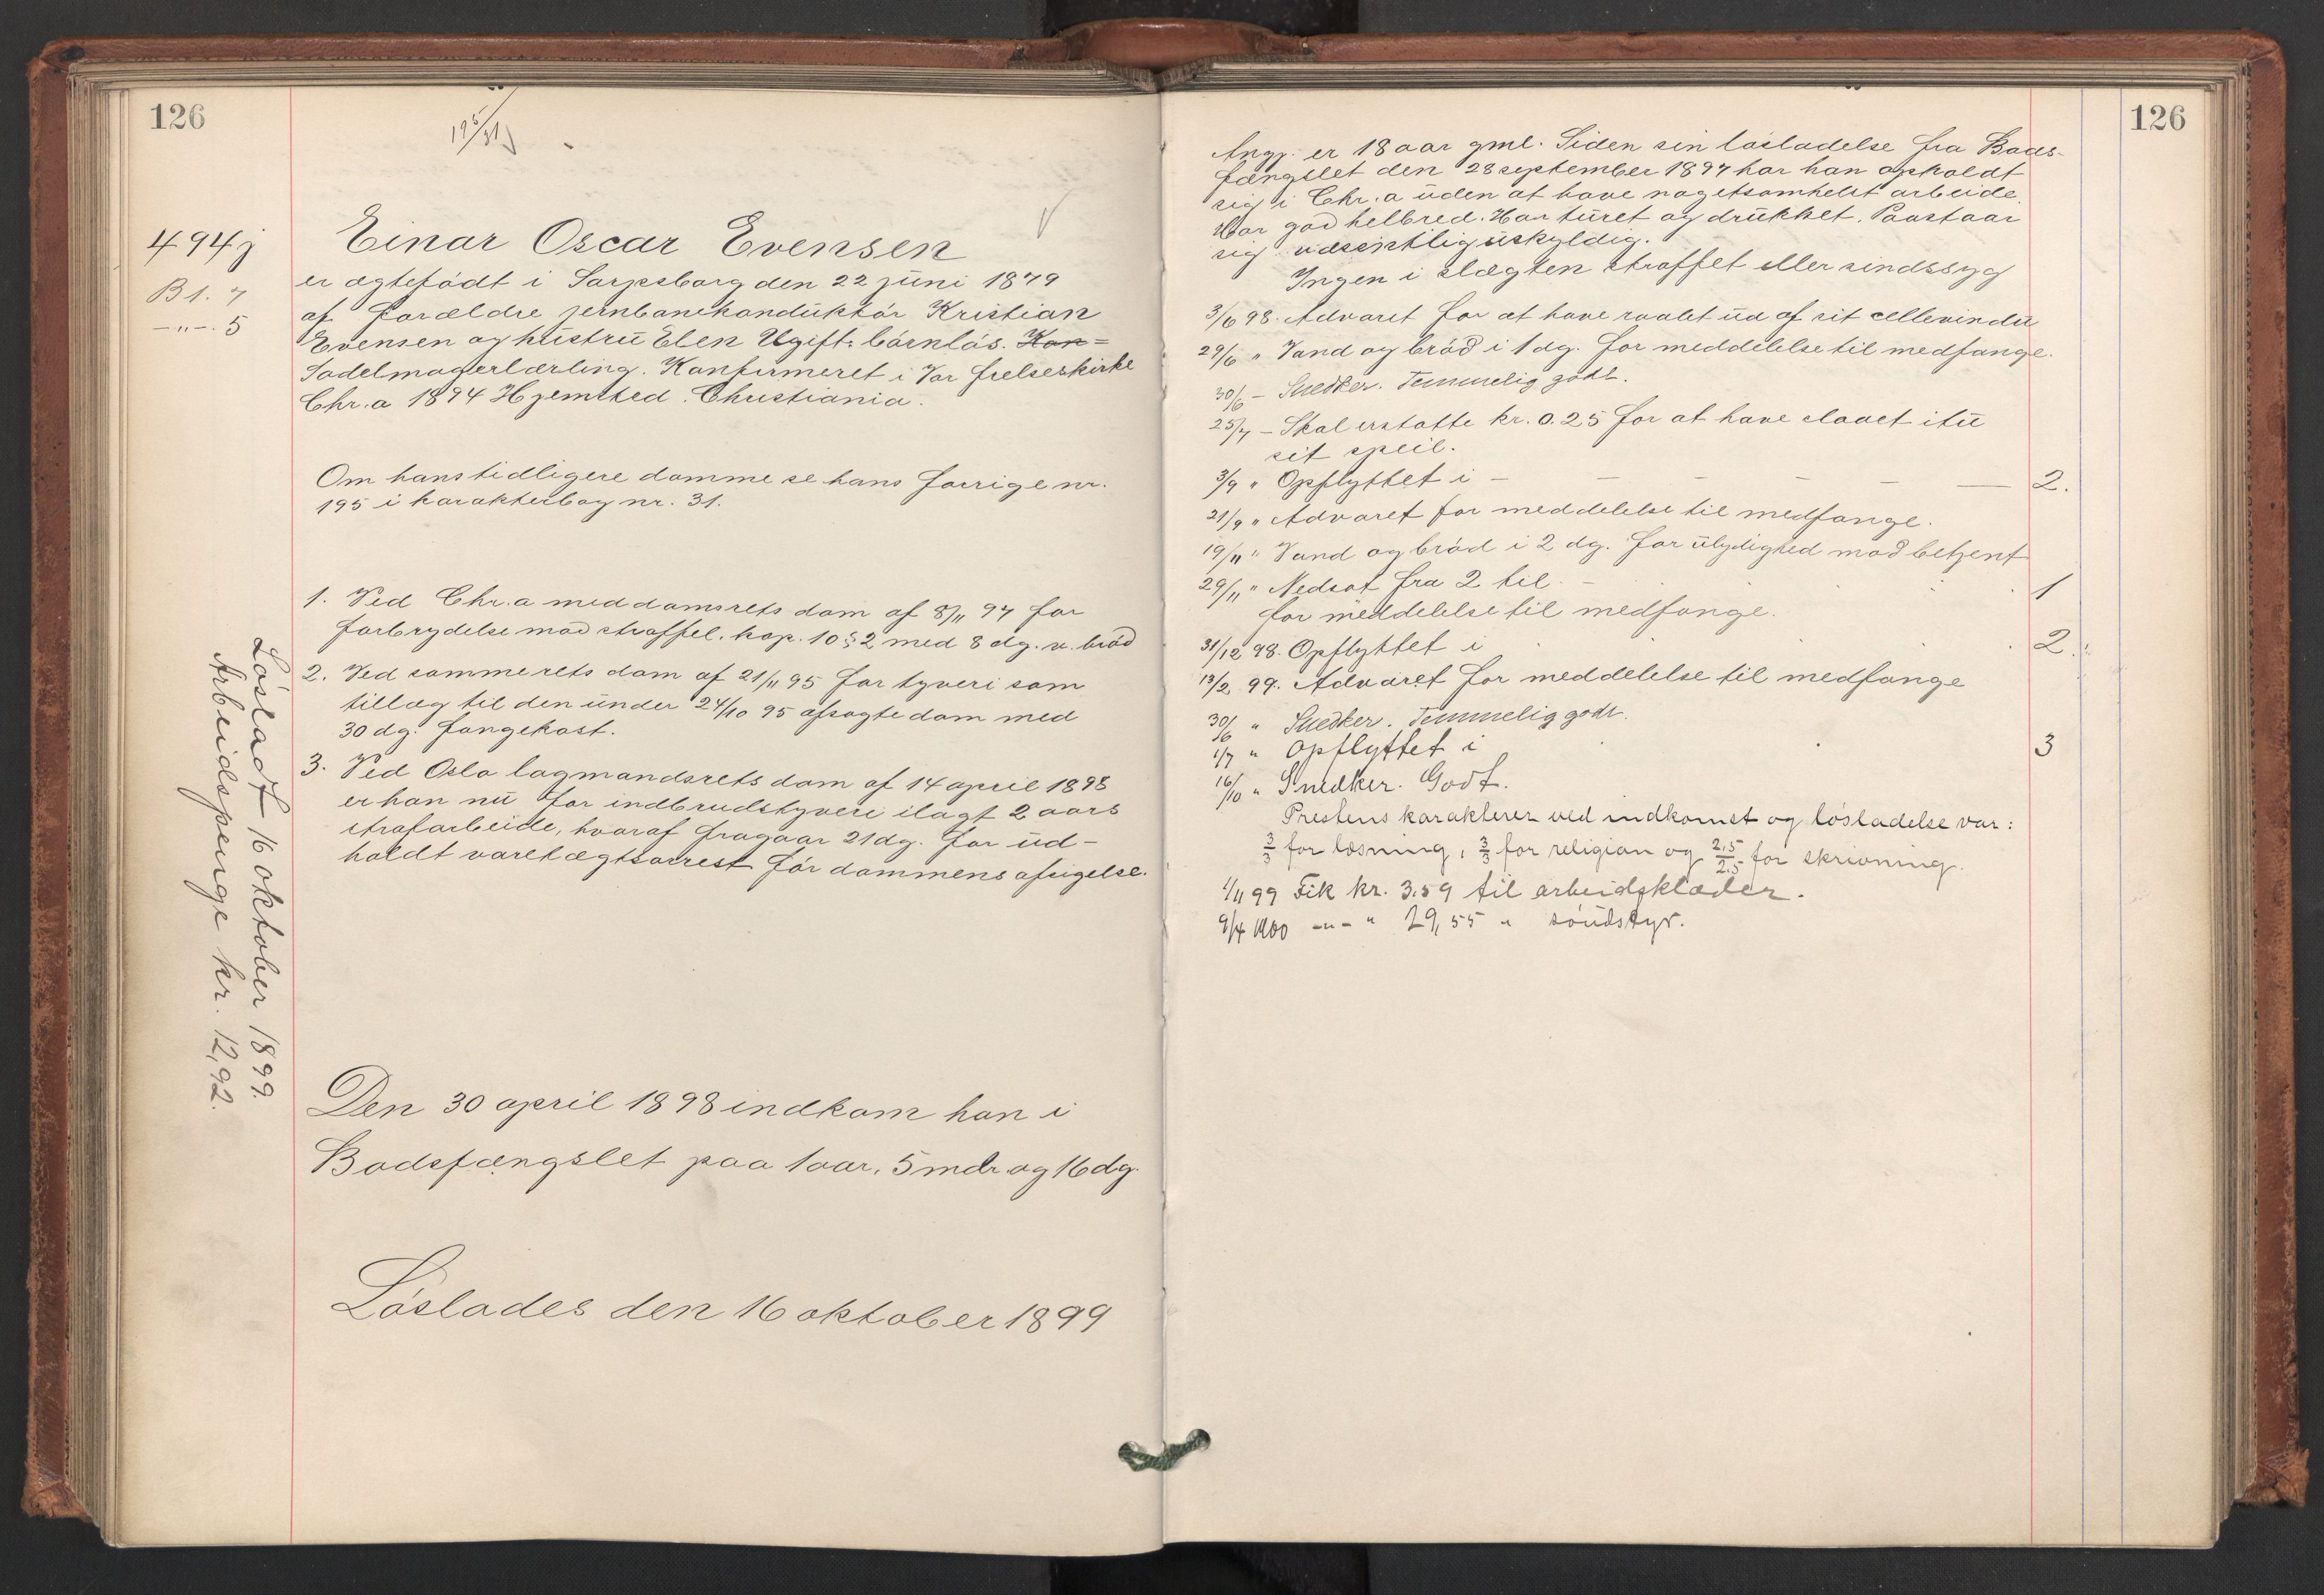 126
195/31 j
494 j
Bl. 7
-"-. 5
Einar Oscar Evensen
er ægtefödt i Sarpsborg den 22 juni 1879
af forældre jernbanekonduktör Kristian
Evensen og hustru Elen Ugift: börnlös. Kon=
Sadelmagerlærling. Konfirmeret i Vor frelserskirke
Chr.a 1894 Hjemsted. Christiania.
Om hans tidligere domme se hans forrige nr.
195 i karakterbog nr. 31.
1. Ved Chr.a meddomsrets dom af 8/11 97 for
forbrydelse mod straffel. kap. 10 § 2 med 8 dg. v. bröd
2. Ved sammerets dom af 21/11 95 for tyveri som
tillæg til den under 24/10 95 afsagte dom med
30 dg. fangekost.
3. Ved Oslo lagmandsrets dom af 14 april 1898
er han nu for indbrudstyveri ilagt 2 aars
strafarbeide, hvoraf fragaar 21 dg. for ud-
holdt varetægtsarrest för dommens afsigelse.
Lösladt 16 oktober 1899.
Arbeidspenge kr. 12,92.
Den 30 april 1898 indkom han i
Bodsfængslet paa 1 aar, 5 mdr og 16 dg.
Löslades den 16 oktober 1899
126
Angj. er 18 aar gml. Siden sin lösladelse fra Bods-
fængslet den 28 september 1897 har han opholdt
sig i Chr.a uden at have nogetsomhelst arbeide.
Har god helbred. Har turet og drukket. Paastaar
sig væsentlig uskyldig.
Ingen i slægten straffet eller sindssyg
3/6 98. Advaret for at have raabt ud af sit cellevindu
29/6 " Vand og bröd i 1 dg. for meddelelse til medfange.
30/6 - Snedker. Temmelig godt.
25/7 - Skal erstatte kr. 0.25 for at have slaaet itu
sit speil.
3/9 " Opflyttet i - - - - - - 2.
21/9 " Advaret for meddelelse til medfange.
19/11 " Vand og bröd i 2 dg. for ulydighed mod betjent
29/11 " Nedsat fra 2 til - 1
for meddelelse til medfange.
31/12 98. Opflyttet i 2.
13/2 99. Advaret for meddelelse til medfange
30/6 " Snedker. Temmelig godt.
1/7 " Opflyttet i 3
16/10 " Snedker. Godt.
Prestens karakterer ved indkomst og lösladelse var:
3/3 for læsning, 3/3 for religion og 2,5/2,5 for skrivning.
1/11 99 Fik kr. 3.59 til arbeidsklæder.
9/4 1900 -"- " 29,55 "